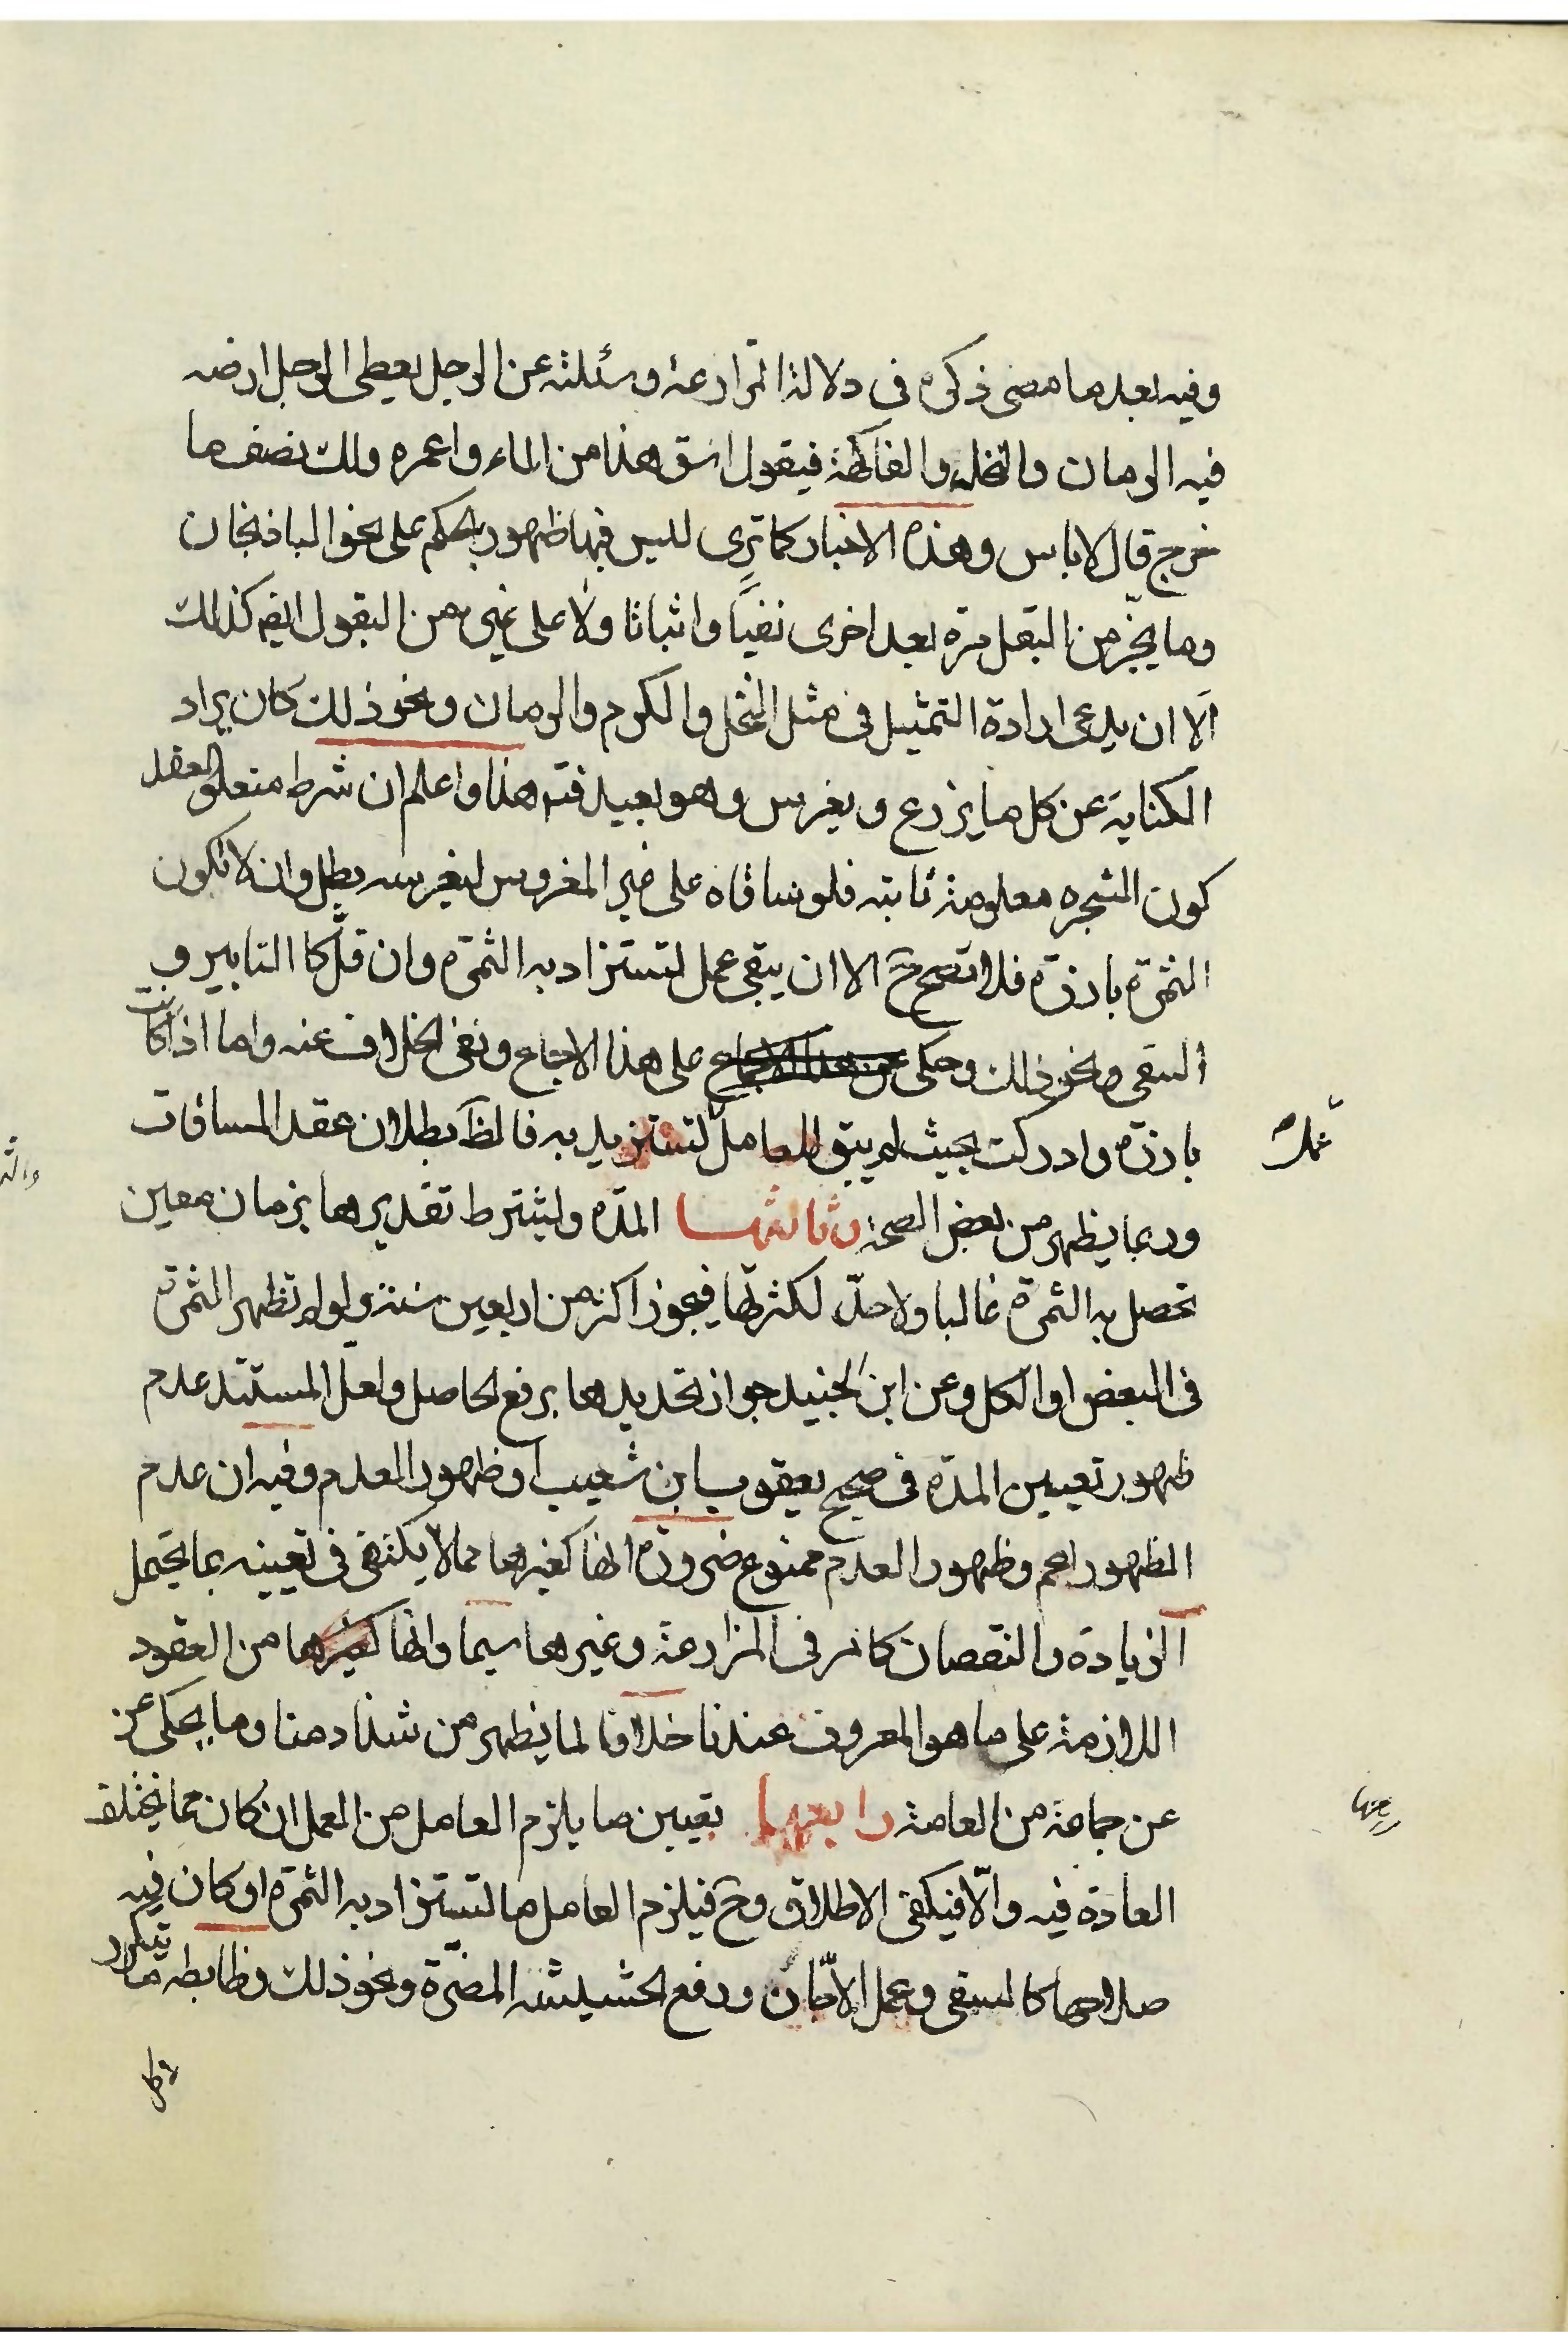 وفيه بعد ما مضى ذكره فى دلالة المزارعة وسئلته عن الرجل يعطى الرجل ارضه
فيه الرمان والنخل والفاكهة فيقول اسق هذا من الماء واعمره ولك نصف ما
خرج قال لا باس وهذه الاخبار كما ترى ليس فيها ظهور بالحكم على نحو الباذنجان
وما يجز من البقل مرة بعد اخرى نفيا واثباتا ولا على غيره من البقول ايضا كذلك
الا ان يدعى ارادة التمثيل فى مثل النخل والكرم والرمان ونحو ذلك كان يراد
الكناية عن كل ما يزرع ويغرس وهو بعيد فتم هذا واعلم ان شرط متعلق العقد
كون الشجره معلومة ثابته فلو ساقاه على غير المغروس ليغرسه بطل وان لا تكون
الثمرة بارزة فلا تصح ح الا ان يبقى عمل لتستزاد به الثمرة وان قل كا التابير و
السقى ونحو ذلك وحكى على هذا الاجماع ونفى الخلاف عنه واما اذا كانت
بارزة وادركت بحيث لم يبق للعامل لتستزيد به فالظ بطلان عقد المساقات
وربما يظهر من بعض الصحة وثالثها المدة وليشترط تقديرها بزمان معين
تحصل به الثمرة غالبا ولا حد لكثرتها فيجوز اكثر من اربعين سنة ولو لم تظهر الثمرة
فى البعض او الكل وعن ابن الجنيد جواز تحديدها برفع الحاصل ولعل المستند عدم
ظهور تعيين المدة فى صحيح يعقوب ابن شعيب او ظهور العدم وفيه ان عدم
الظهور اعم وظهور العدم ممنوع ضرورة انها كغيرها مما لا يكتفى فى تعيينه بما يحتمل
الزيادة والنقصان كما مر فى المزارعة وغيرها سيما وانها كغيرها من العقود
اللازمة على ما هو المعروف عندنا خلافا لما يظهر من شذاد منا وما يحكى عن
عن جماعة من العامة رابعها تعيين ما يلزم العامل من العمل ان كان مما يختلف
العادة فيه والا فيكفى الاطلاق وح فيلزم العامل ما لتستزاد به الثمرة او كان فيه
صلاحها كالسقى وعمل ودفع الحشيشة المضرة ونحو ذلك وظابطه ما يتكرر